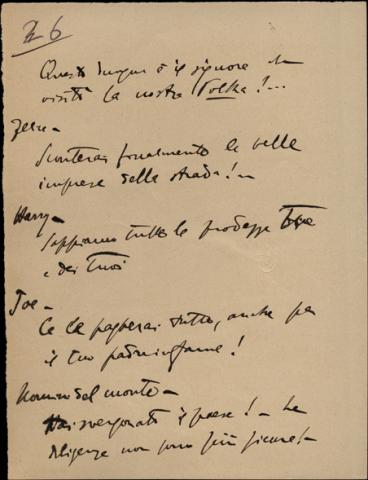 6
Questo dunque è il signore che
visitò la nostra Polka!...
Joe –
Sconterai finalmente le belle
imprese della strada! –
Harry –
Sappiamo tutte le prodezze tue
e dei tuoi
Joe –
Ce la pagherai tutta, anche per
il tuo padre infame!
Uomini del monte –
Hai svergognato il paese! – Le
diligenze non sono più sicure! –